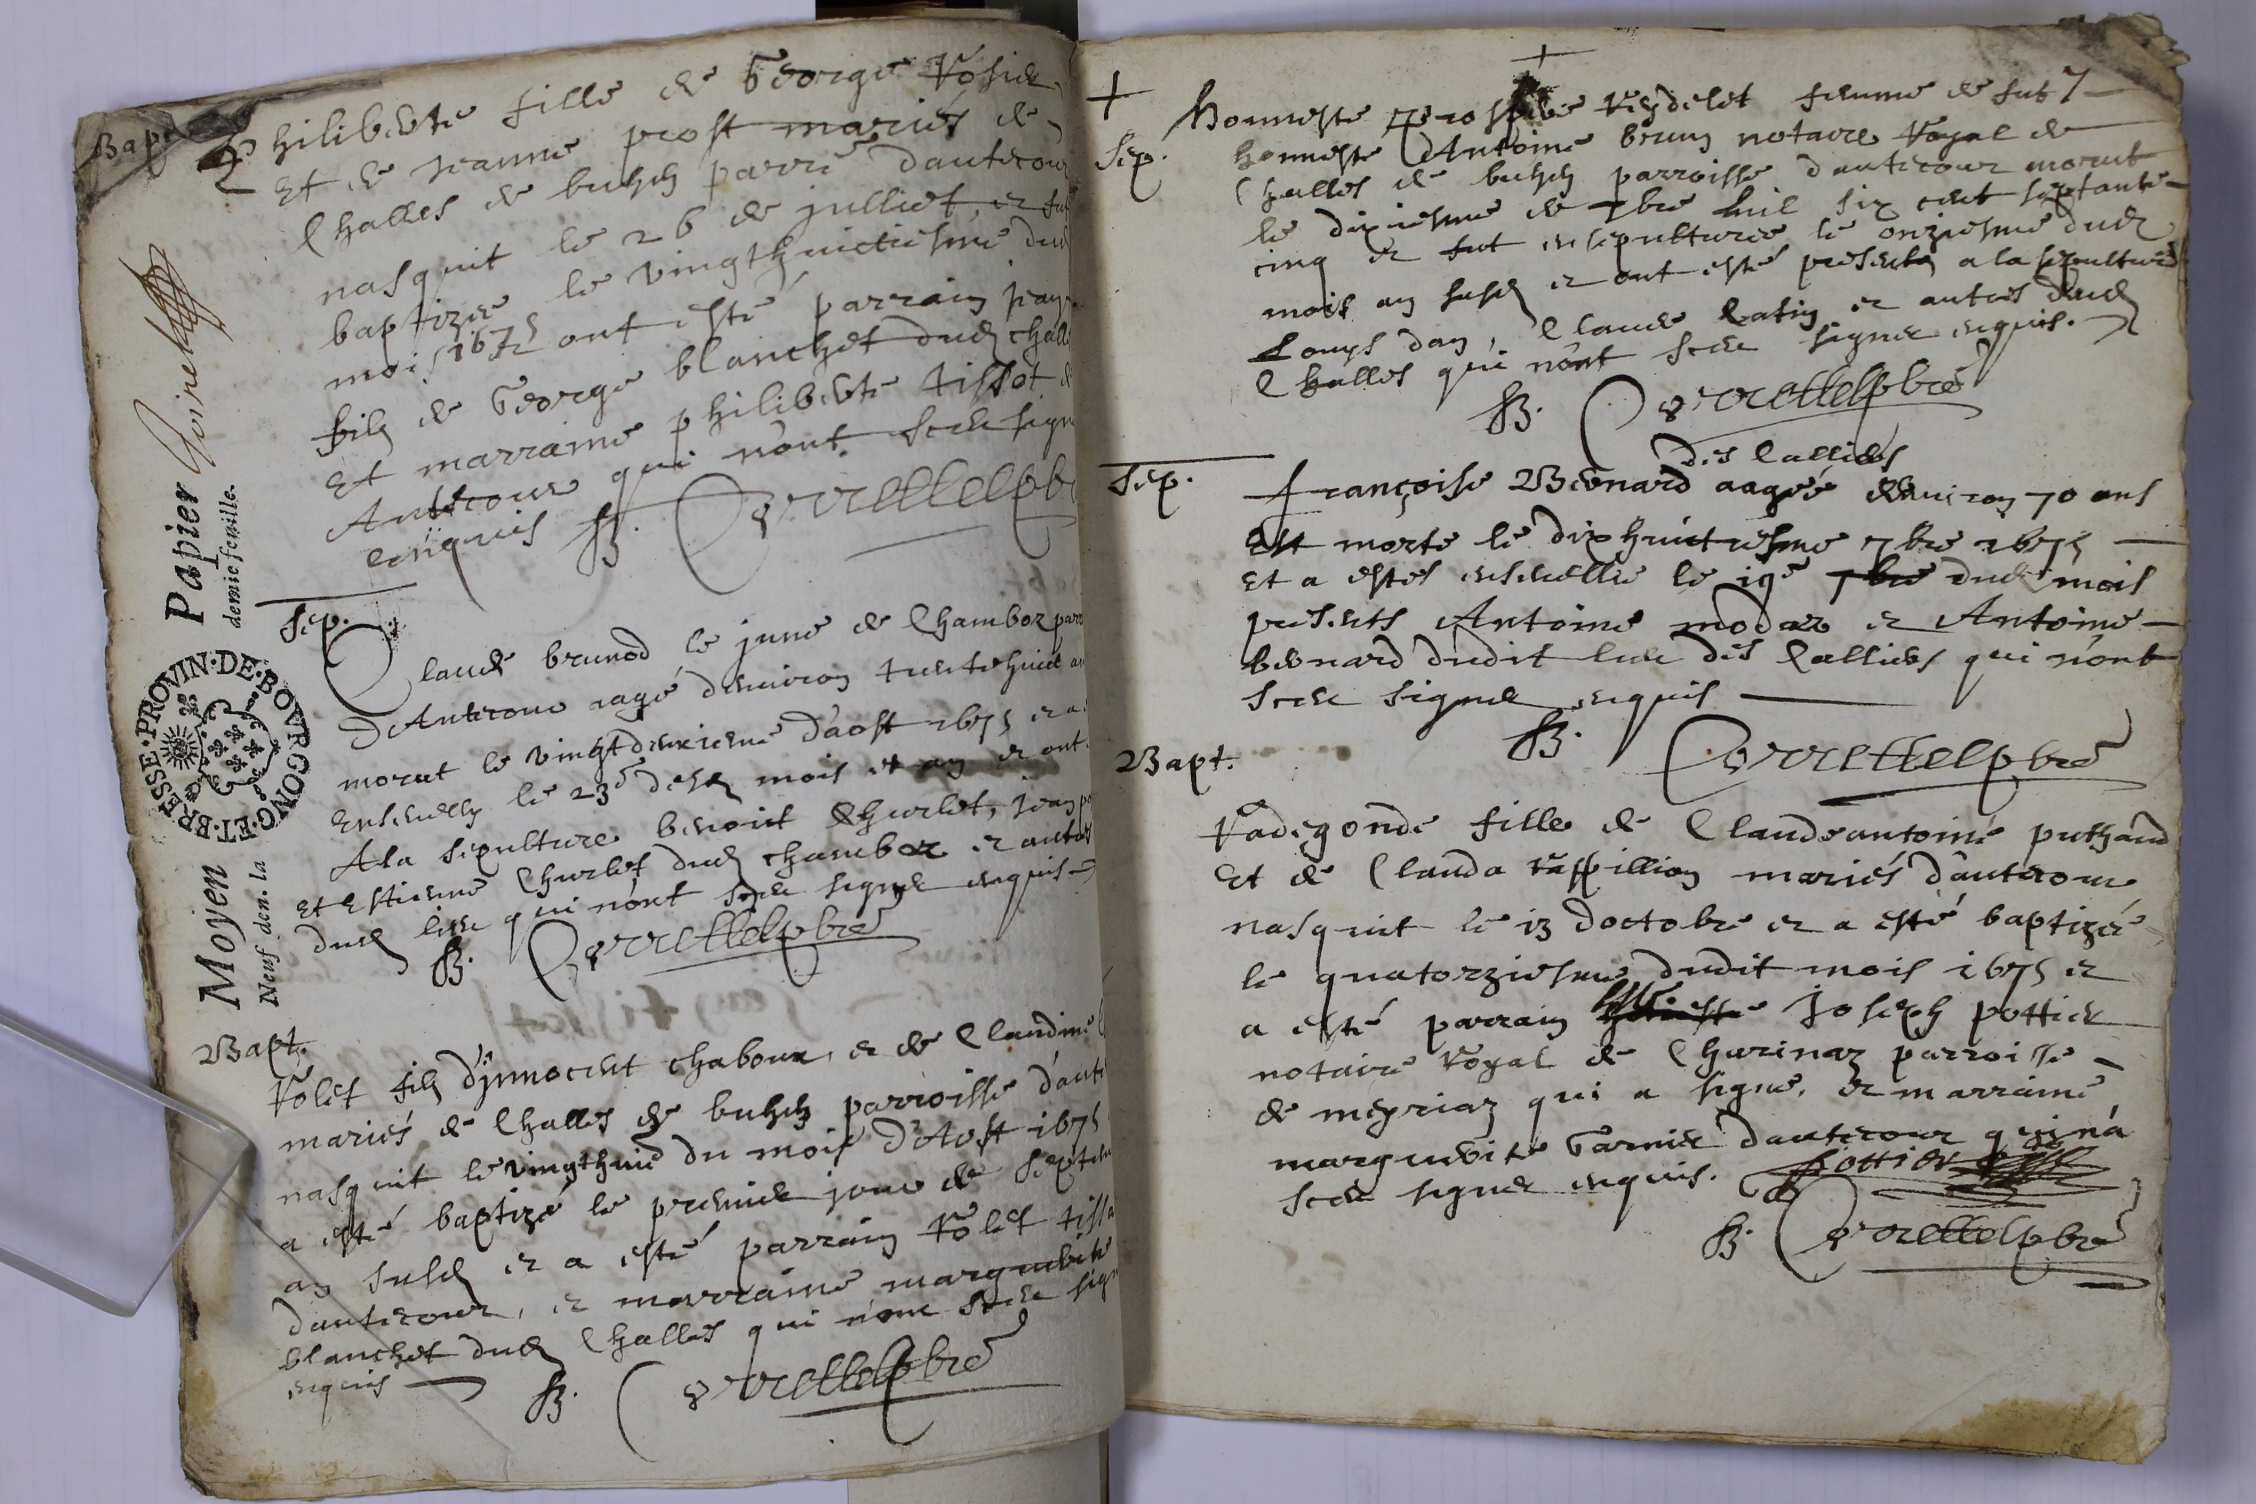 Bapt
Philiberte fille de George Rosier
Et de Jeanne prost mariés de
Challes de buhen parre dautecour
nasquit le 26 de julliet et fut
baptizée le vingthuictiesme dud
mois 1675 ont esté parrain jean
filz de George blanchet dud chall
Et marraine philiberte tissot d
Autecour qui nont sceu sign
enquis B. Corretelpbr
Papier
demie feuille.
Moyen
Neuf den. la
BRESSE·PROVIN·DE·BOVRGONG·ET·
Sep.
Claude brunod le june de Chamboz parr
D'Autecour aagé denviron trentehuict an
morut le vingtdeuxiesme d'aost 1675 et a
Ensevelly le 23e desd mois et an et ont
A la sepulture benoict Churlet, jean
Et Estienne Churlet dud chamboz et autres
dud lieu qui nont sceu signe enquis
B. Corretelpbre
Bapt.
Rolet filz d'jnnocent chaboux, et de Claudine
mariés de Challes de buhen parroisse d'aut
nasquit le vingthuict du mois d'Aost 1675
a esté baptizé le premier jour de septem
an susd et a esté parrain Rolet tisso
dautecour, et marraine marguerite
blanchet dud Challes qui nont sceu sign
enquis B. Corretelpbre
Sep. Honneste Reydelet femme de fut
honneste Antoine brun notaire Royal de
Challes de buhen parroisse dautecour morut
le dixiesme de 7bre mil six cent septante
cinq et fut ensepulturée le onziesme dud
mois an susd et ont esté presents a la sepulture
Louys dan, Claude Catin et autres dud
Challes qui nont sceu signer enquis.
B. Corretelpbre
des Calliers
Sep. Françoise Bernard aagée denviron 70 ans
Est morte le dixhuictiesme 7bre 1675
Et a estes ensevellie le 19e 7bre dud mois
presents Antoine modaz et Antoine
bernard dudit lieu des Calliers qui nont
sceu signer enquis
B. Corretelpbre
Bapt.
Radegonde fille de Claudeantoine puthaud
Et de Clauda raffillion mariés d'autecour
nasquit le 13 doctobre et a esté baptizée
le quatorziesme dudit mois 1675 et
a esté parrain Joseph pottier
notaire Royal de Charinaz parroisse
de meyriaz qui a signé. et marraine
marguerite Garnier dautecour qui na
sceu signer enquis. pottier
B. Corretelpbre